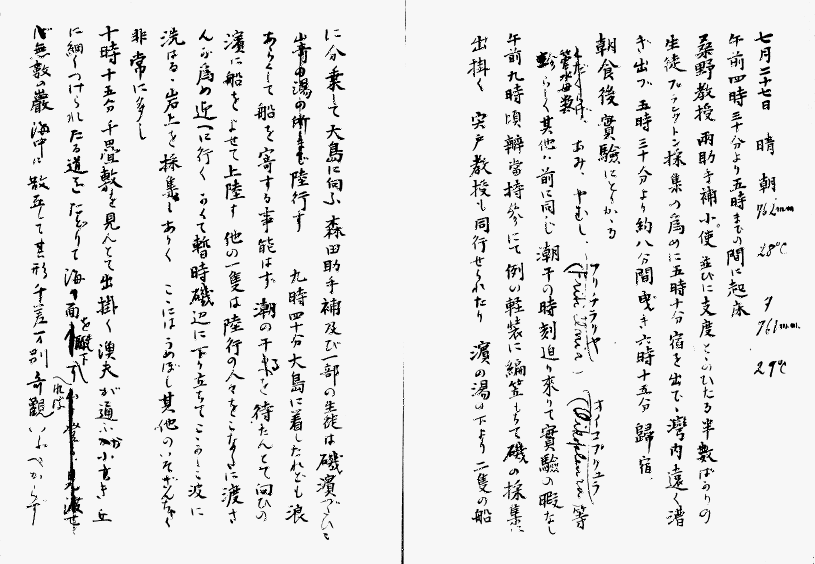 七月二十七日 晴 朝 762mm 28℃ 夕 761m.m. 29℃
午前四時三十分より五時までの間に起床
桑野教授 両助手補小使 並びに支度とゝのひたる半数ばかりの
生徒プランクトン採集の為めに五時十分宿を出で、湾内遠く漕
ぎ出づ 五時三十分より約八分間曳き六時十五分歸宿
朝食後實驗にとりかゝる
くだくらげ、あみ、やむし、フリチラリヤ オイコプリュラ 等
らしく其他は前に同じ 潮干の時刻迫り來りて實驗の暇なし
午前九時頃辨當持參にて例の軽装に編笠もちて磯の採集に
出掛く 宍戸教授も同行せられたり 濱の湯の下より二隻の船
に分乗して大島に向ふ 森田助手補及び一部の生徒は磯濱づたひに
崎の湯の陸行す 九時四十分大島に着したれども浪
あらくして船を寄する事能はず 潮の干るを待たんとて向ひの
濱に船をよせて上陸す 他の一隻は陸行の人々をこなたに渡さ
んが為め近くに行く かくて暫時磯辺に下り立ちてこゝかしこ波に
洗はるゝ岩上を採集しありく こゝにはうめぼし其他のいそぎんちゃく
非常に多し
十時十五分千畳敷を見んとて出掛く 漁夫が通ふ小高き丘
に細くつけられたる道をたどりて海の面を瞰下れば
無数の巖海中に散在して其形千差万別奇觀いふべからず